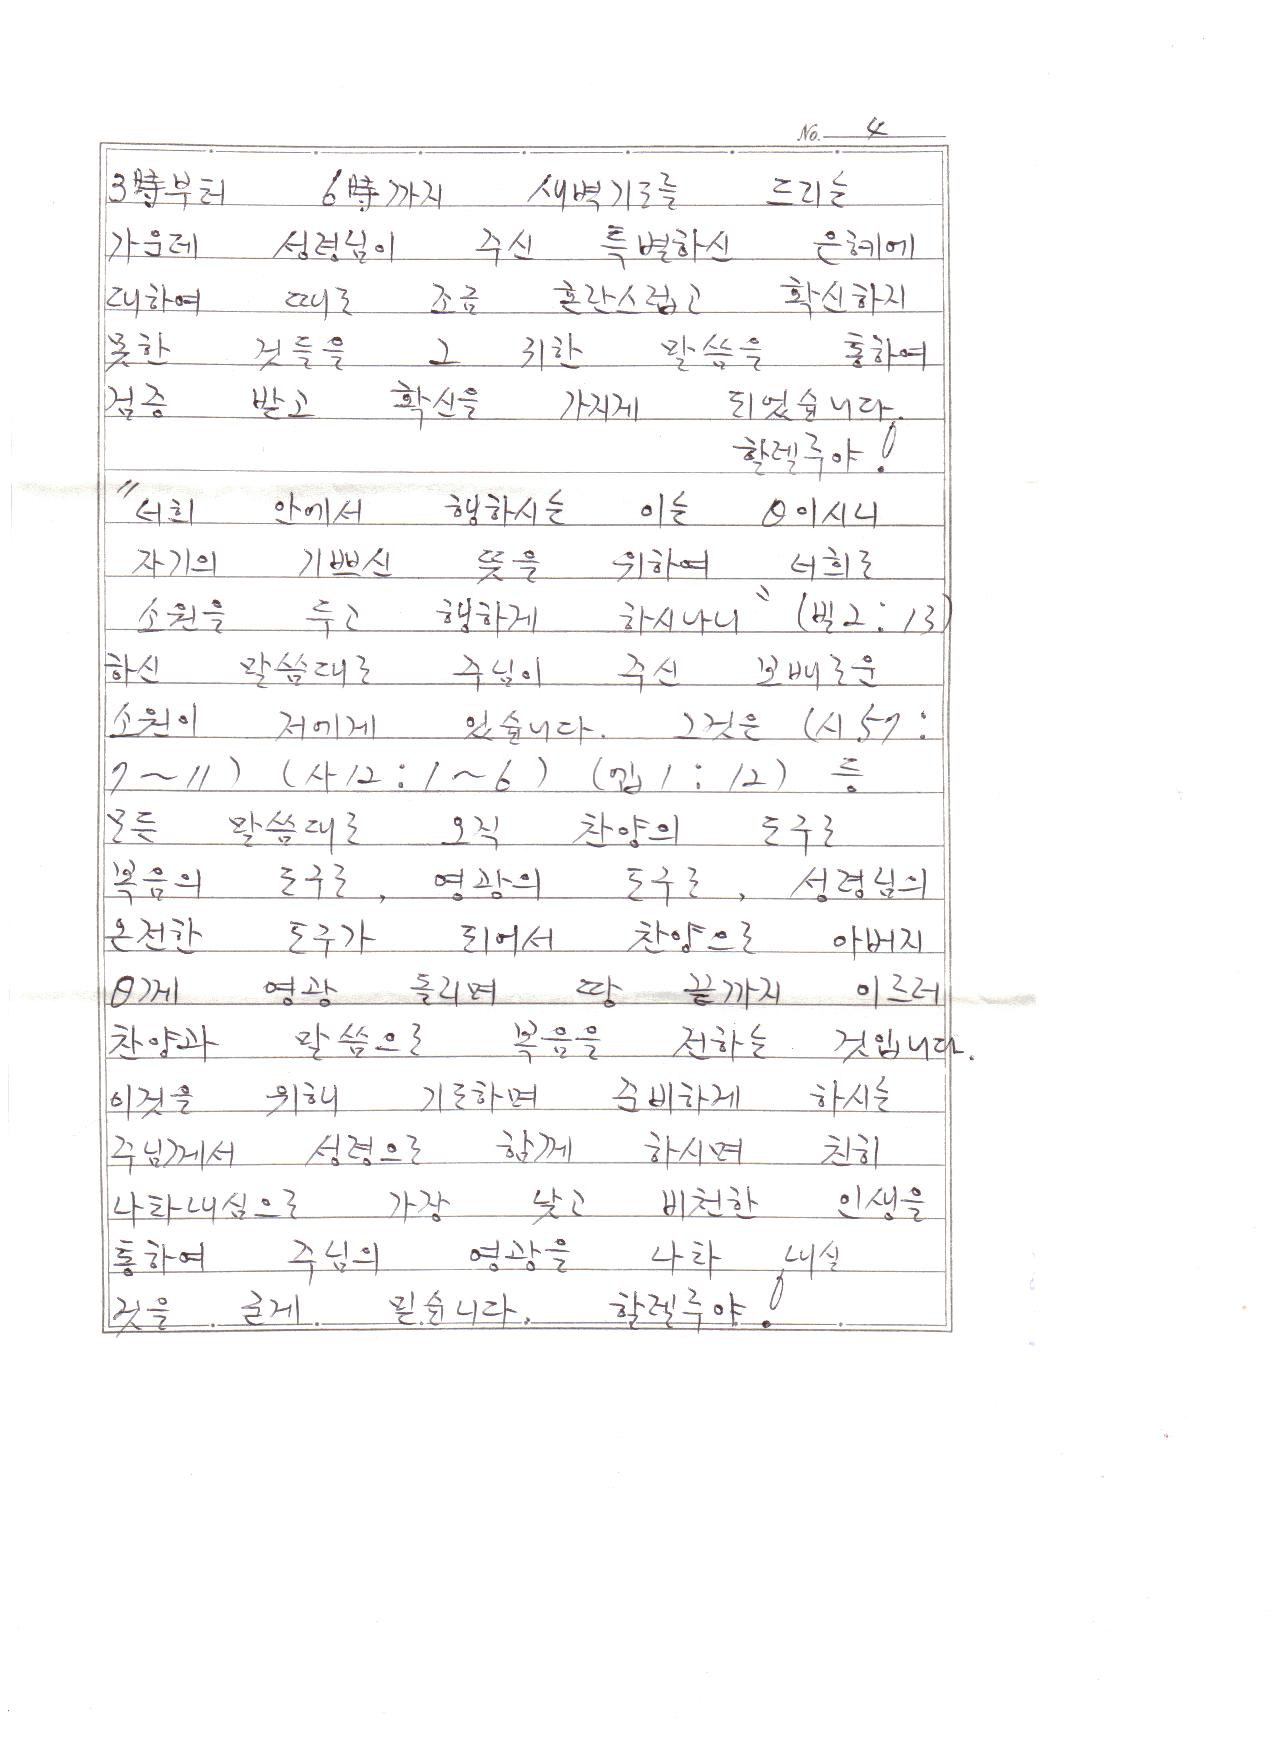 No. 4
3時부터 6時까지 새벽기도를 드리는
가운데 성령님이 주신 특별하신 은혜에
대하여 때로 조금 혼란스럽고 확신하지
못한 것들을 그 귀한 말씀을 통하여
검증 받고 확신을 가지게 되었습니다.
할렐루야!
"너희 안에서 행하시는 이는 θ이시니
자기의 기쁘신 뜻을 위하여 너희로
소원을 두고 행하게 하시나니" (빌2:13)
하신 말씀대로 주님이 주신 보배로운
소원이 저에게 있습니다. 그것은 (시57:
7~11) (사12:1~6) (엡1:12) 등
모든 말씀대로 오직 찬양의 도구로
복음의 도구로, 영광의 도구로, 성령님의
온전한 도구가 되어서 찬양으로 아버지
θ께 영광 돌리며 땅 끝까지 이르러
찬양과 말씀으로 복음을 전하는 것입니다.
이것을 위해 기도하며 준비하게 하시는
주님께서 성령으로 함께 하시며 친히
나타내심으로 가장 낮고 비천한 인생을
통하여 주님의 영광을 나타 내실
것을 굳게 믿습니다. 할렐루야!